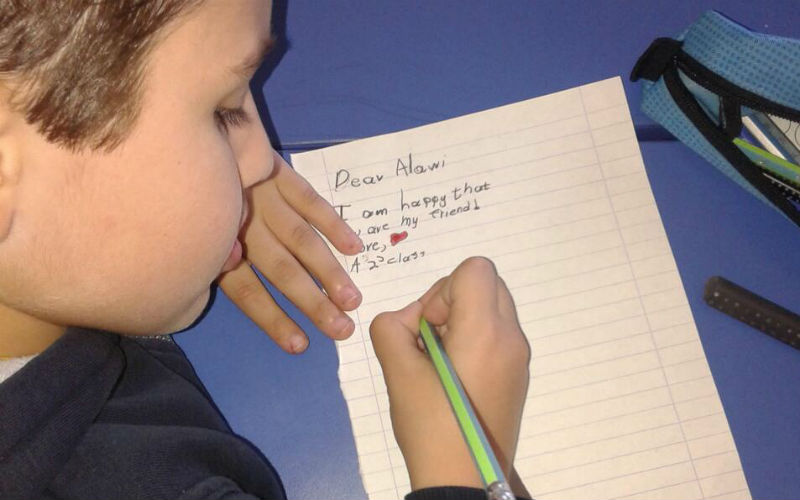 Dear Alawi
I am happy that
are my friend!
A 2 class